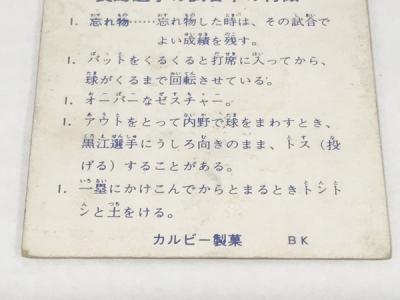 1. 忘れ物……忘れ物した時は、その試合で
よい成績を残す。
1. バットをくるくると打席に入ってから、
球がくるまで回転させている。
1. オーバーなゼスチャー。
1. アウトをとって内野で球をまわすとき、
黒江選手にうしろ向きのまま、トス（投
げる）することがある。
1. 一塁にかけこんでからとまるときトント
ンと土をける。
カルビー製菓 BK